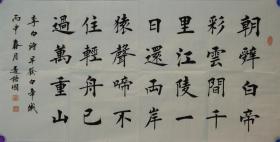 朝辭白帝
彩雲間千
里江陵一
日還兩岸
猿聲啼不
住輕舟已
過萬重山
李白詩早發白帝城
丙申春月